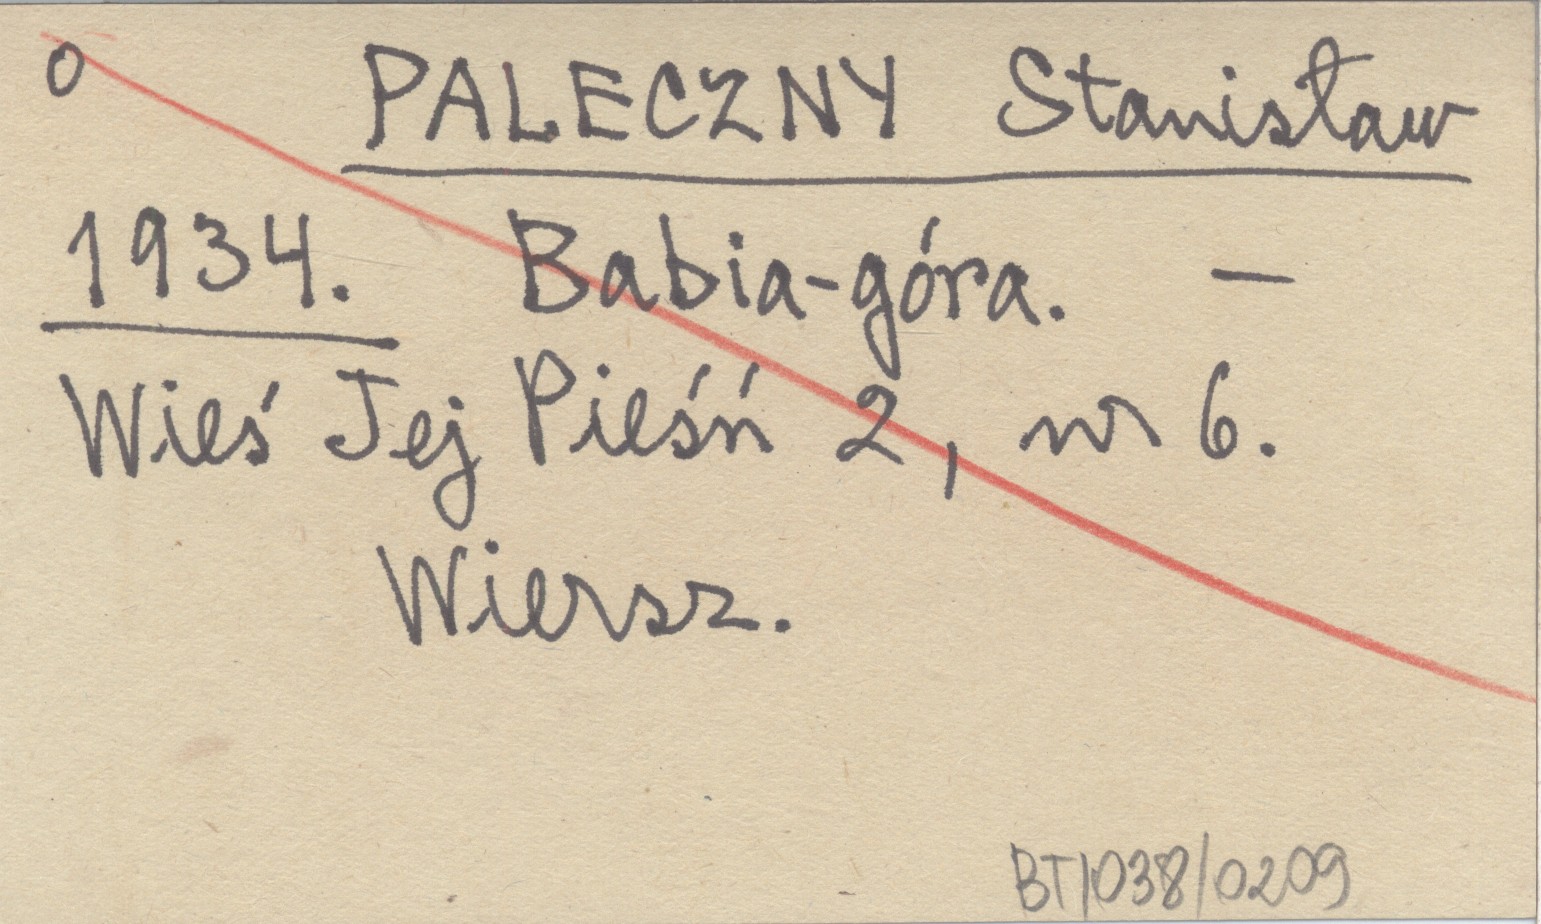 0 PALECZNY Stanisław
1934. Babia-góra. —
Wieś Jej Pieśń 2, nr 6.
Wiersz.
BT/038/0209